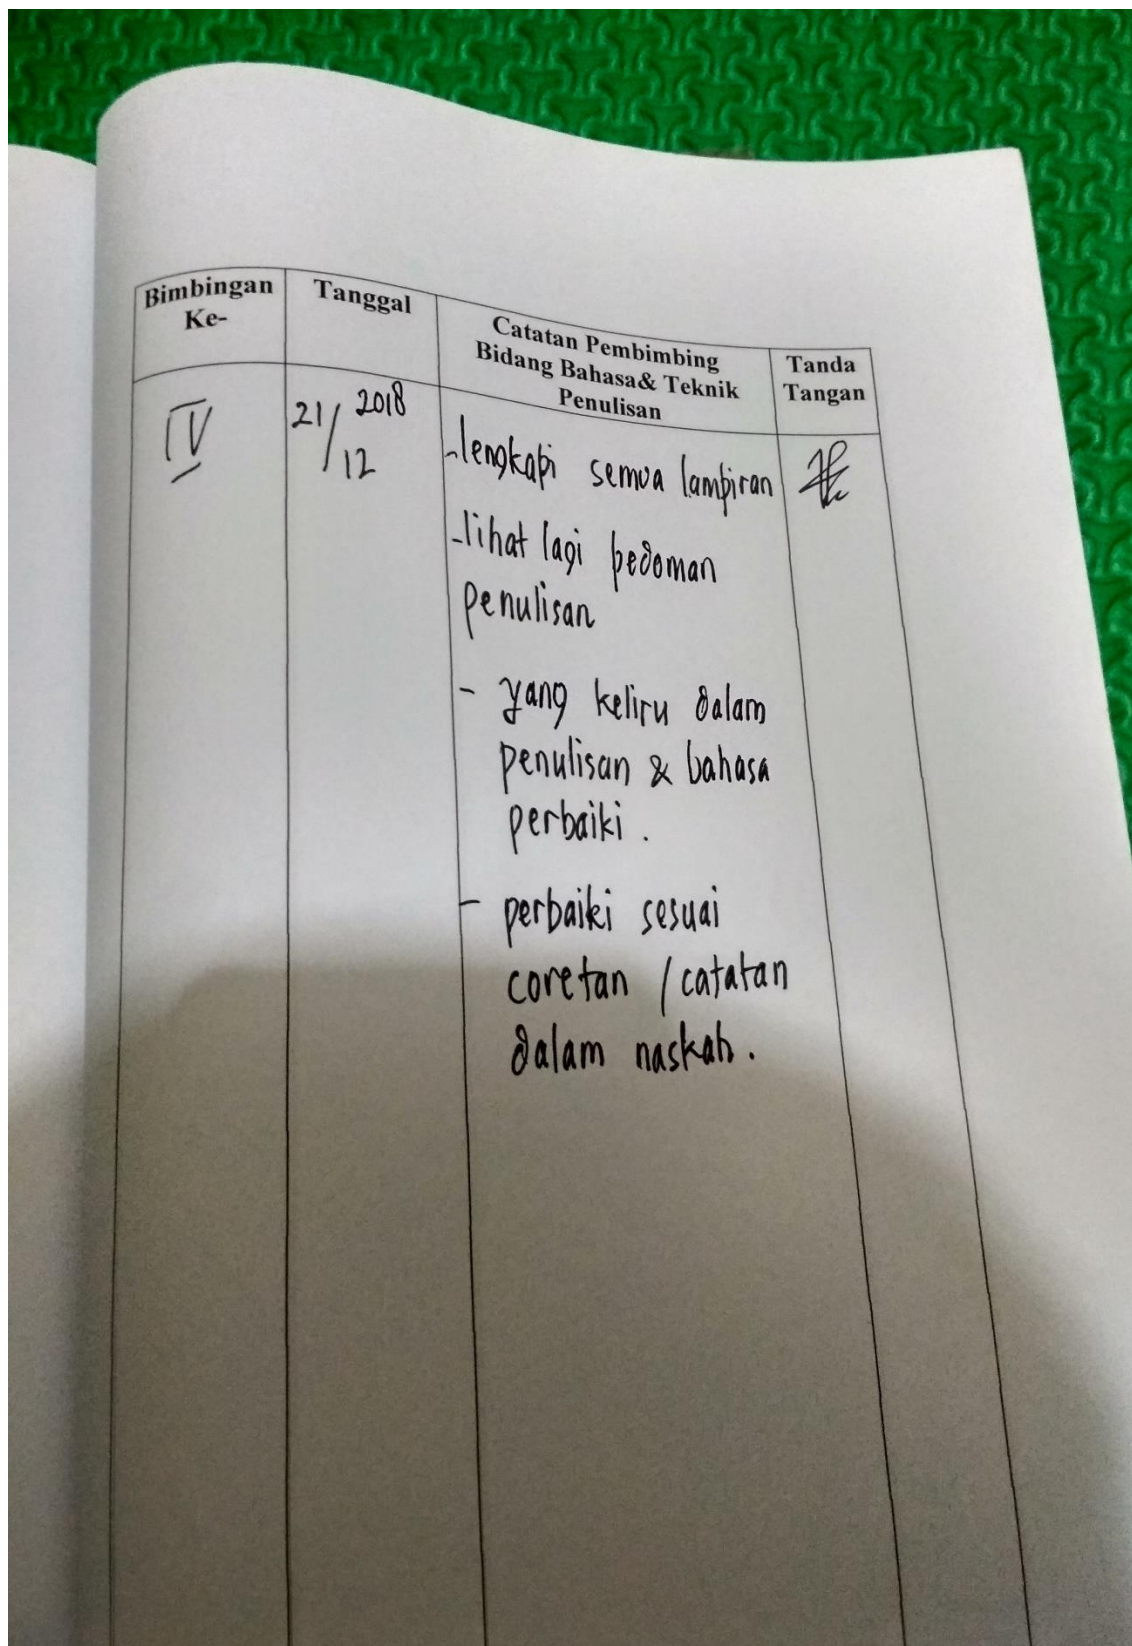 Bimbingan
Ke-
Tanggal
Catatan Pembimbing
Bidang Bahasa& Teknik
Penulisan
Tanda
Tangan
IV
21/12 2018
-lengkapi semua lampiran
-lihat lagi pedoman
penulisan
- yang keliru dalam
penulisan & bahasa
perbaiki .
- perbaiki sesuai
coretan / catatan
dalam naskah .